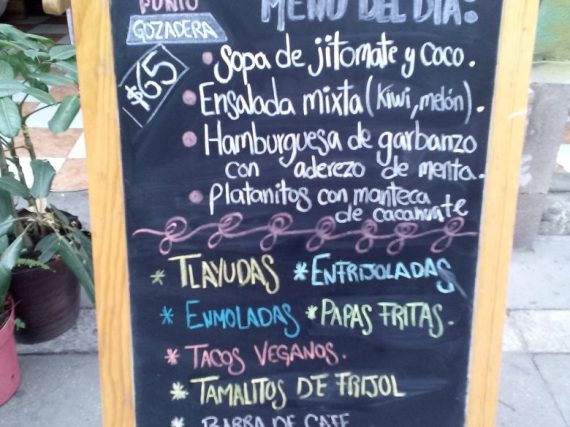 PUNTO
GOZADERA
$65
MENÚ DEL DÍA:
Sopa de jitomate y coco.
Ensalada mixta (kiwi, melón).
Hamburguesa de garbanzo
con aderezo de menta.
Platanitos con manteca
de cacahuate
* TLAYUDAS * ENFRIJOLADAS
* ENMOLADAS * PAPAS FRITAS.
* TACOS VEGANOS.
* TAMALITOS DE FRIJOL
* BARRA DE CAFE